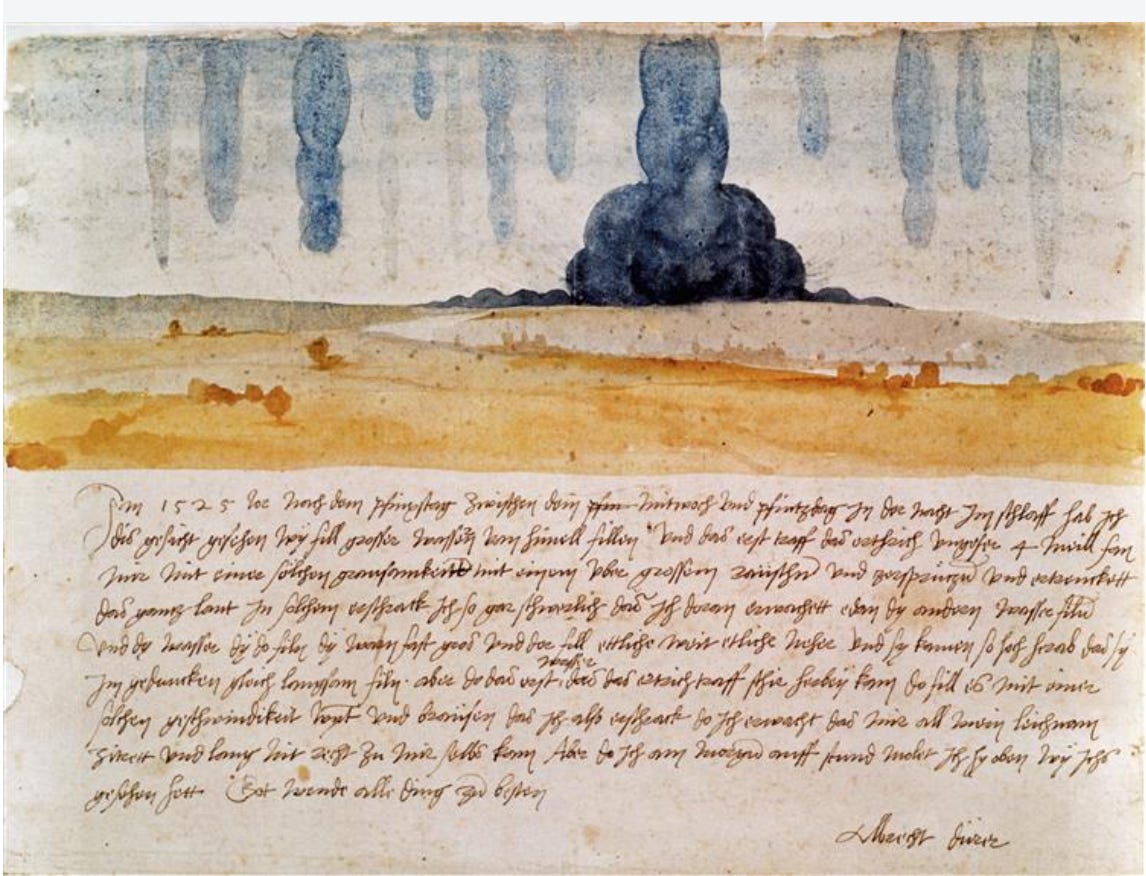 Im 1525 Jor nach dem pfinxstag zwischen dem pfin mitwoch und pfintzdag in der nacht im schlaff hab ich
dis gesicht gesehen wy fill grosser wassern vom himell fillen Und das erst traff das erthrich ungefer 4 meill fan
mir mit einer solchen grausamkeitt mit einem uber grossem raüschn und zersprützn und ertrenckett
das gantz lant In solchem erschrack ich so gar schwerlich das ich doran erwachett edan dy andern wasser filn
Und dy wasser dy do filn dy warn fast gros und der fill ettliche weit etliche neher und sy kamen so hoch herab das sy
im geduncken gleich langsam filn aber do das erst wasser das das ertrich traff schir herbey kam do fill es mit einer
solchen geschwindikeit wynt und braüsen das ich also erschrack do ich erwacht das mir all mein leichnam
zitrett und lang nit recht zu mir selbs kam Aber do ich am morgn auff stund molet ich hy oben wy ichs
gesehen hett Got wende alle ding zu besten
Albrecht Dürer